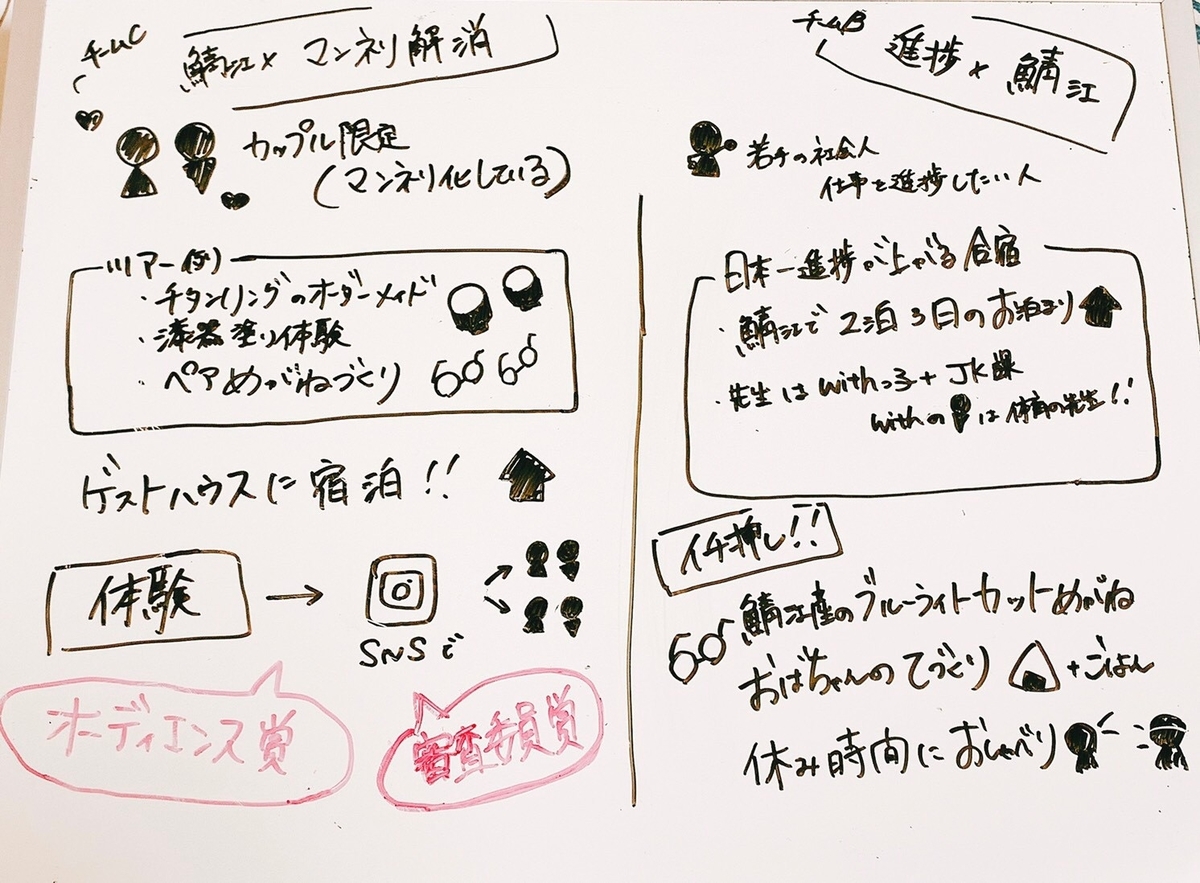 チームC
鯖江×マンネリ解消
カップル限定
(マンネリ化している)
ツアー例)
・チタンリングのオーダーメイド
・漆器塗り体験
・ペアめがねづくり
ゲストハウスに宿泊!!
体験
SNSで
オーディエンス賞
審査委員賞
チームB
進捗×鯖江
若手の社会人
仕事を進捗したい人
日本一進捗が上がる合宿
・鯖江で2泊3日のお泊まり
・先生はwithっ子+JK課
withのは体育の先生!!
イチ押し!!
鯖江産のブルーライトカットめがね
おばちゃんのてづくり+ごはん
休み時間におしゃべり